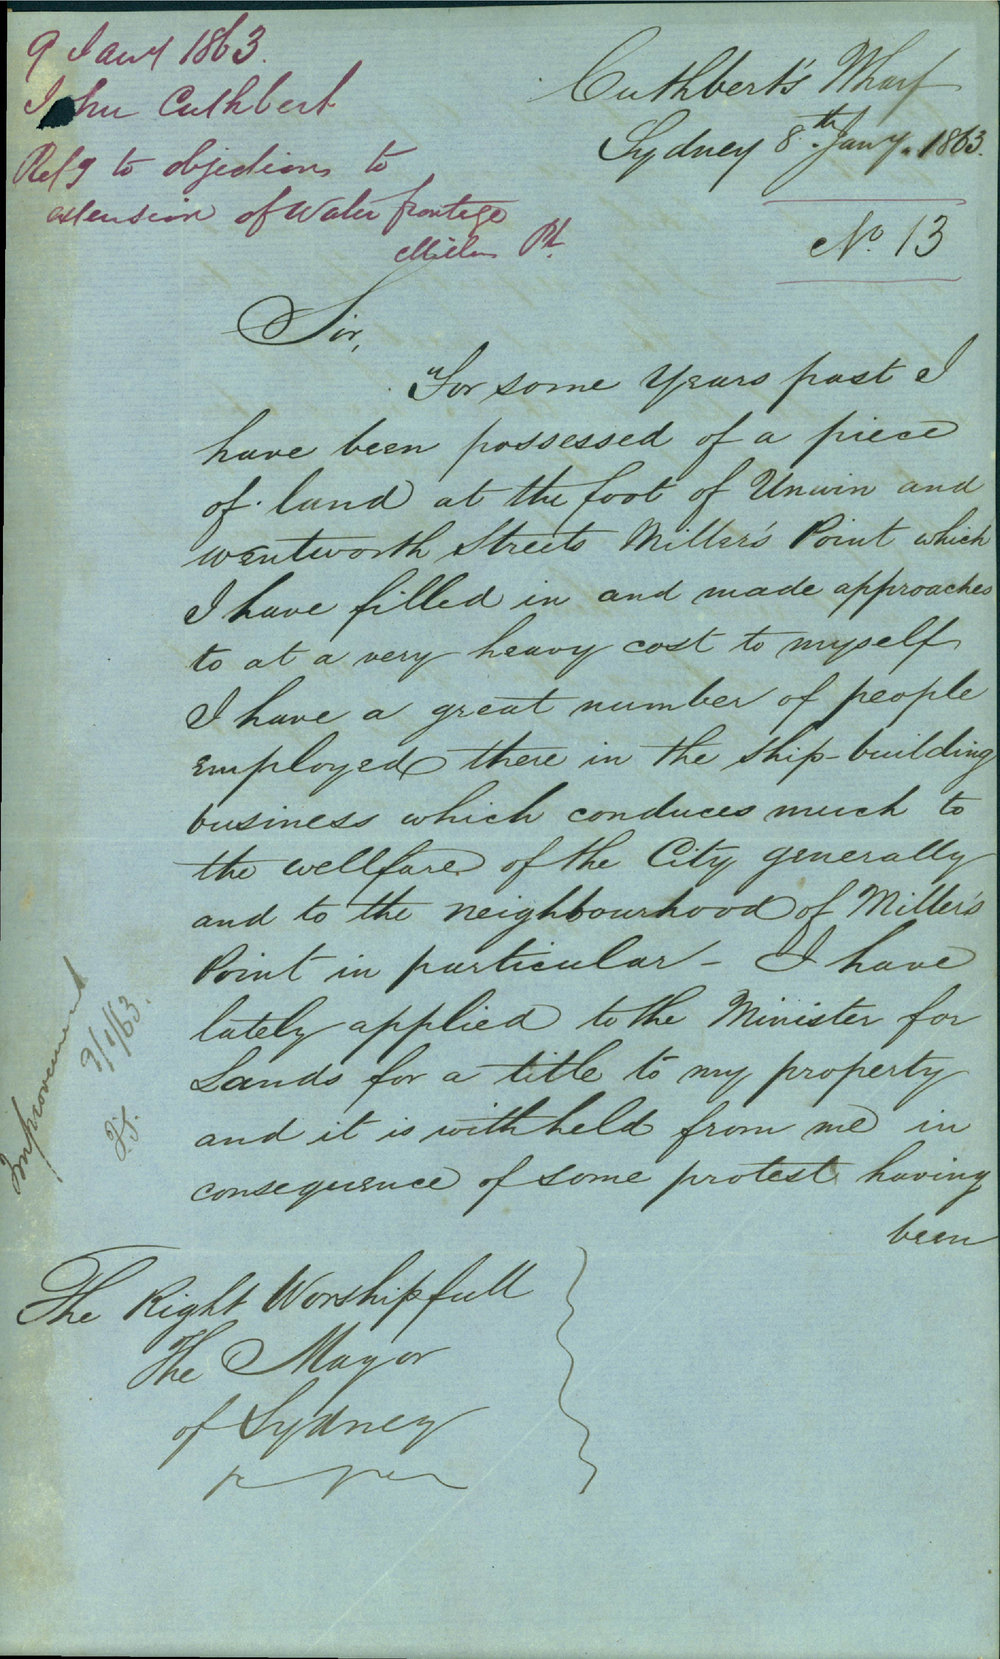 9 Jany 1863.
John Cuthbert
Refg to objections to
extension of Water frontage
Millers Pt.
Cuthbert's Wharf
Sydney 8th Jany. 1863.
No. 13
Sir,
For some years past I
have been possessed of a piece
of land at the foot of Unwin and
Wentworth Streets Miller's Point which
I have filled in and made approaches
to at a very heavy cost to myself
I have a great number of people
employed there in the ship-building
business which conduces much to
the wellfare of the City generally
and to the neighbourhood of Miller's
Point in particular - I have
lately applied to the Minister for
Lands for a title to my property
and it is withheld from me in
consequence of some protest having
been
The Right Worshipfull
The Mayor
of Sydney
Improvement
9/1/63.